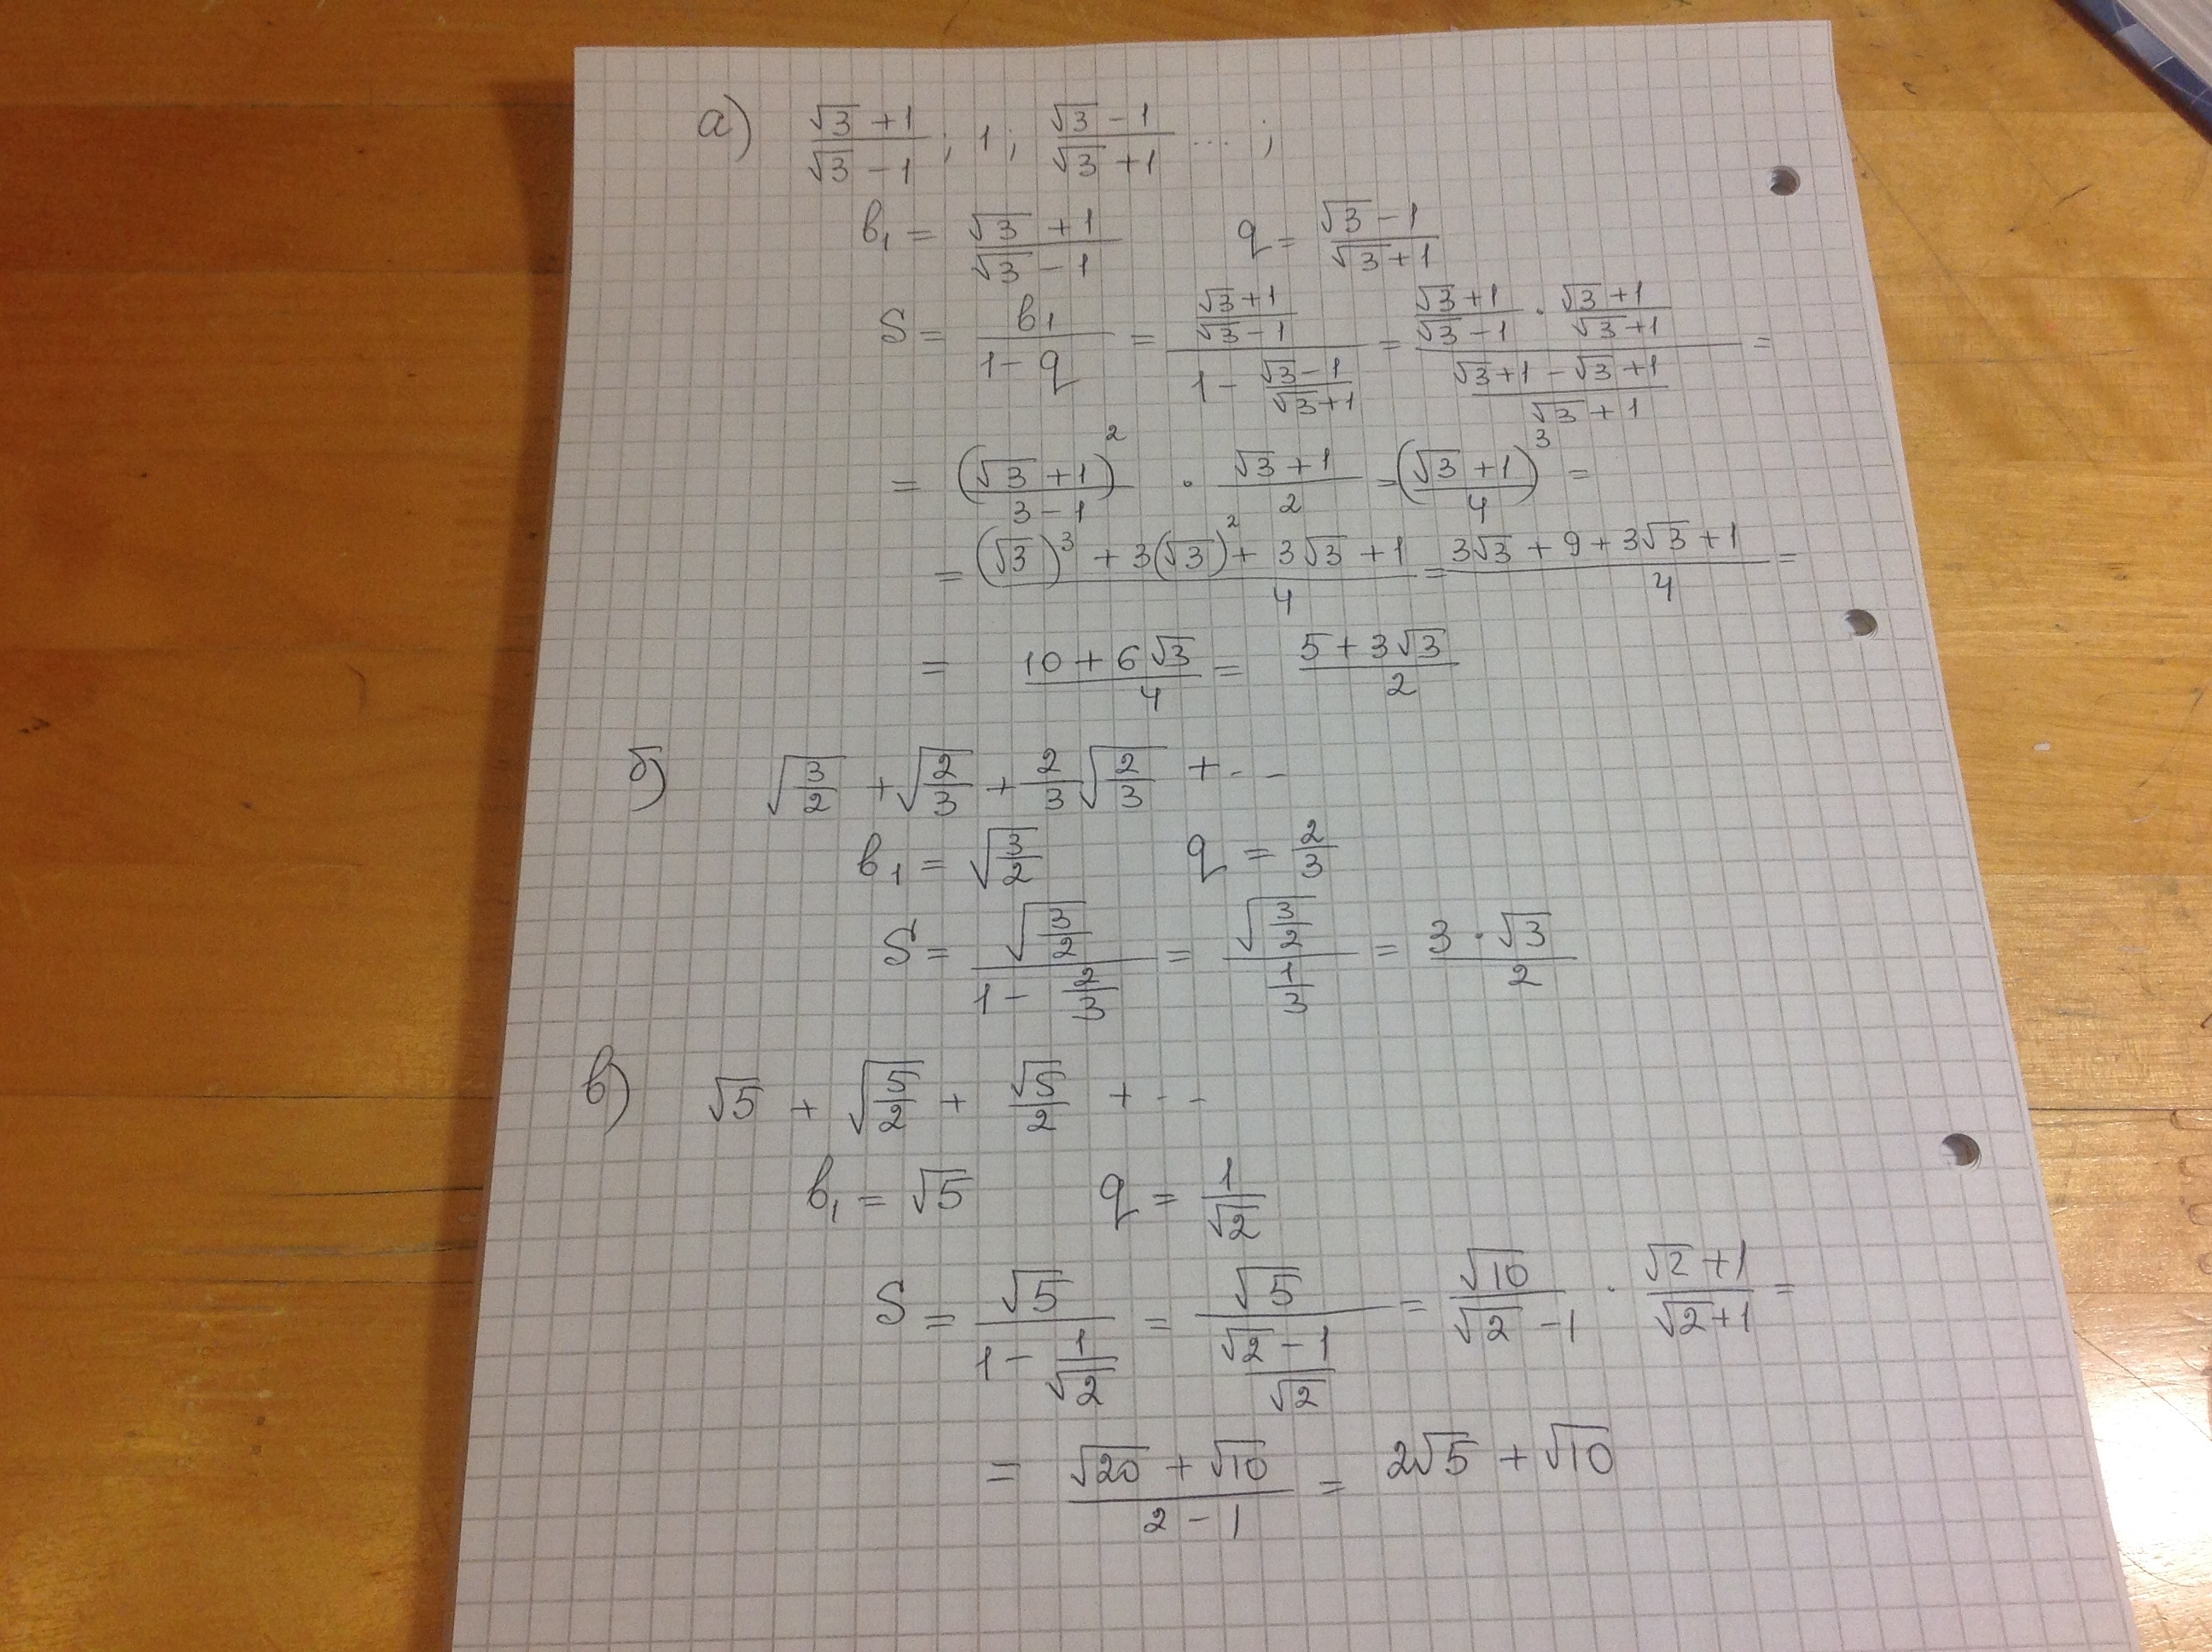 а) (√3 + 1)/(√3 - 1); 1; (√3 - 1)/(√3 + 1) ... ;
b₁ = (√3 + 1)/(√3 - 1) q = (√3 - 1)/(√3 + 1)
S = b₁/(1 - q) = ((√3 + 1)/(√3 - 1))/(1 - (√3 - 1)/(√3 + 1)) = ((√3 + 1)/(√3 - 1) · (√3 + 1)/(√3 + 1))/((√3 + 1 - √3 + 1)/(√3 + 1)) =
= (√3 + 1)²/(3 - 1) · (√3 + 1)/2 = (√3 + 1)³/4 =
= ((√3)³ + 3(√3)² + 3√3 + 1)/4 = (3√3 + 9 + 3√3 + 1)/4 =
= (10 + 6√3)/4 = (5 + 3√3)/2
б) √(3/2) + √(2/3) + 2/3 √(2/3) + - -
b₁ = √(3/2) q = 2/3
S = √(3/2)/(1 - 2/3) = √(3/2)/(1/3) = (3 · √3)/2
в) √5 + √(5/2) + √5/2 + - -
b₁ = √5 q = 1/√2
S = √5/(1 - 1/√2) = √5/((√2 - 1)/√2) = √10/(√2 - 1) · (√2 + 1)/(√2 + 1) =
= (√20 + √10)/(2 - 1) = 2√5 + √10